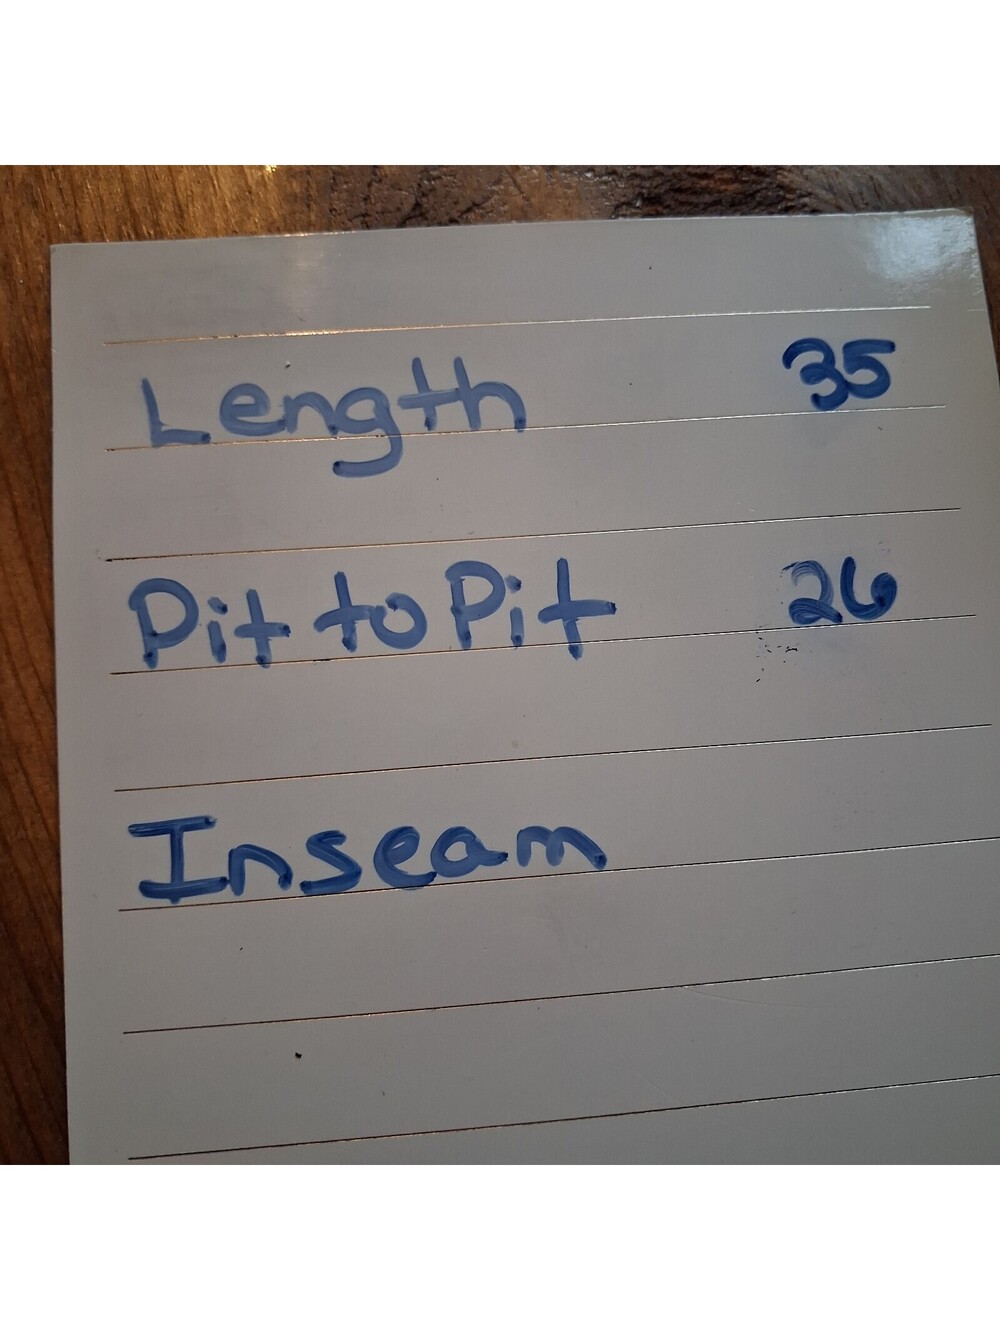 Length 35
Pit to Pit 26
Inseam